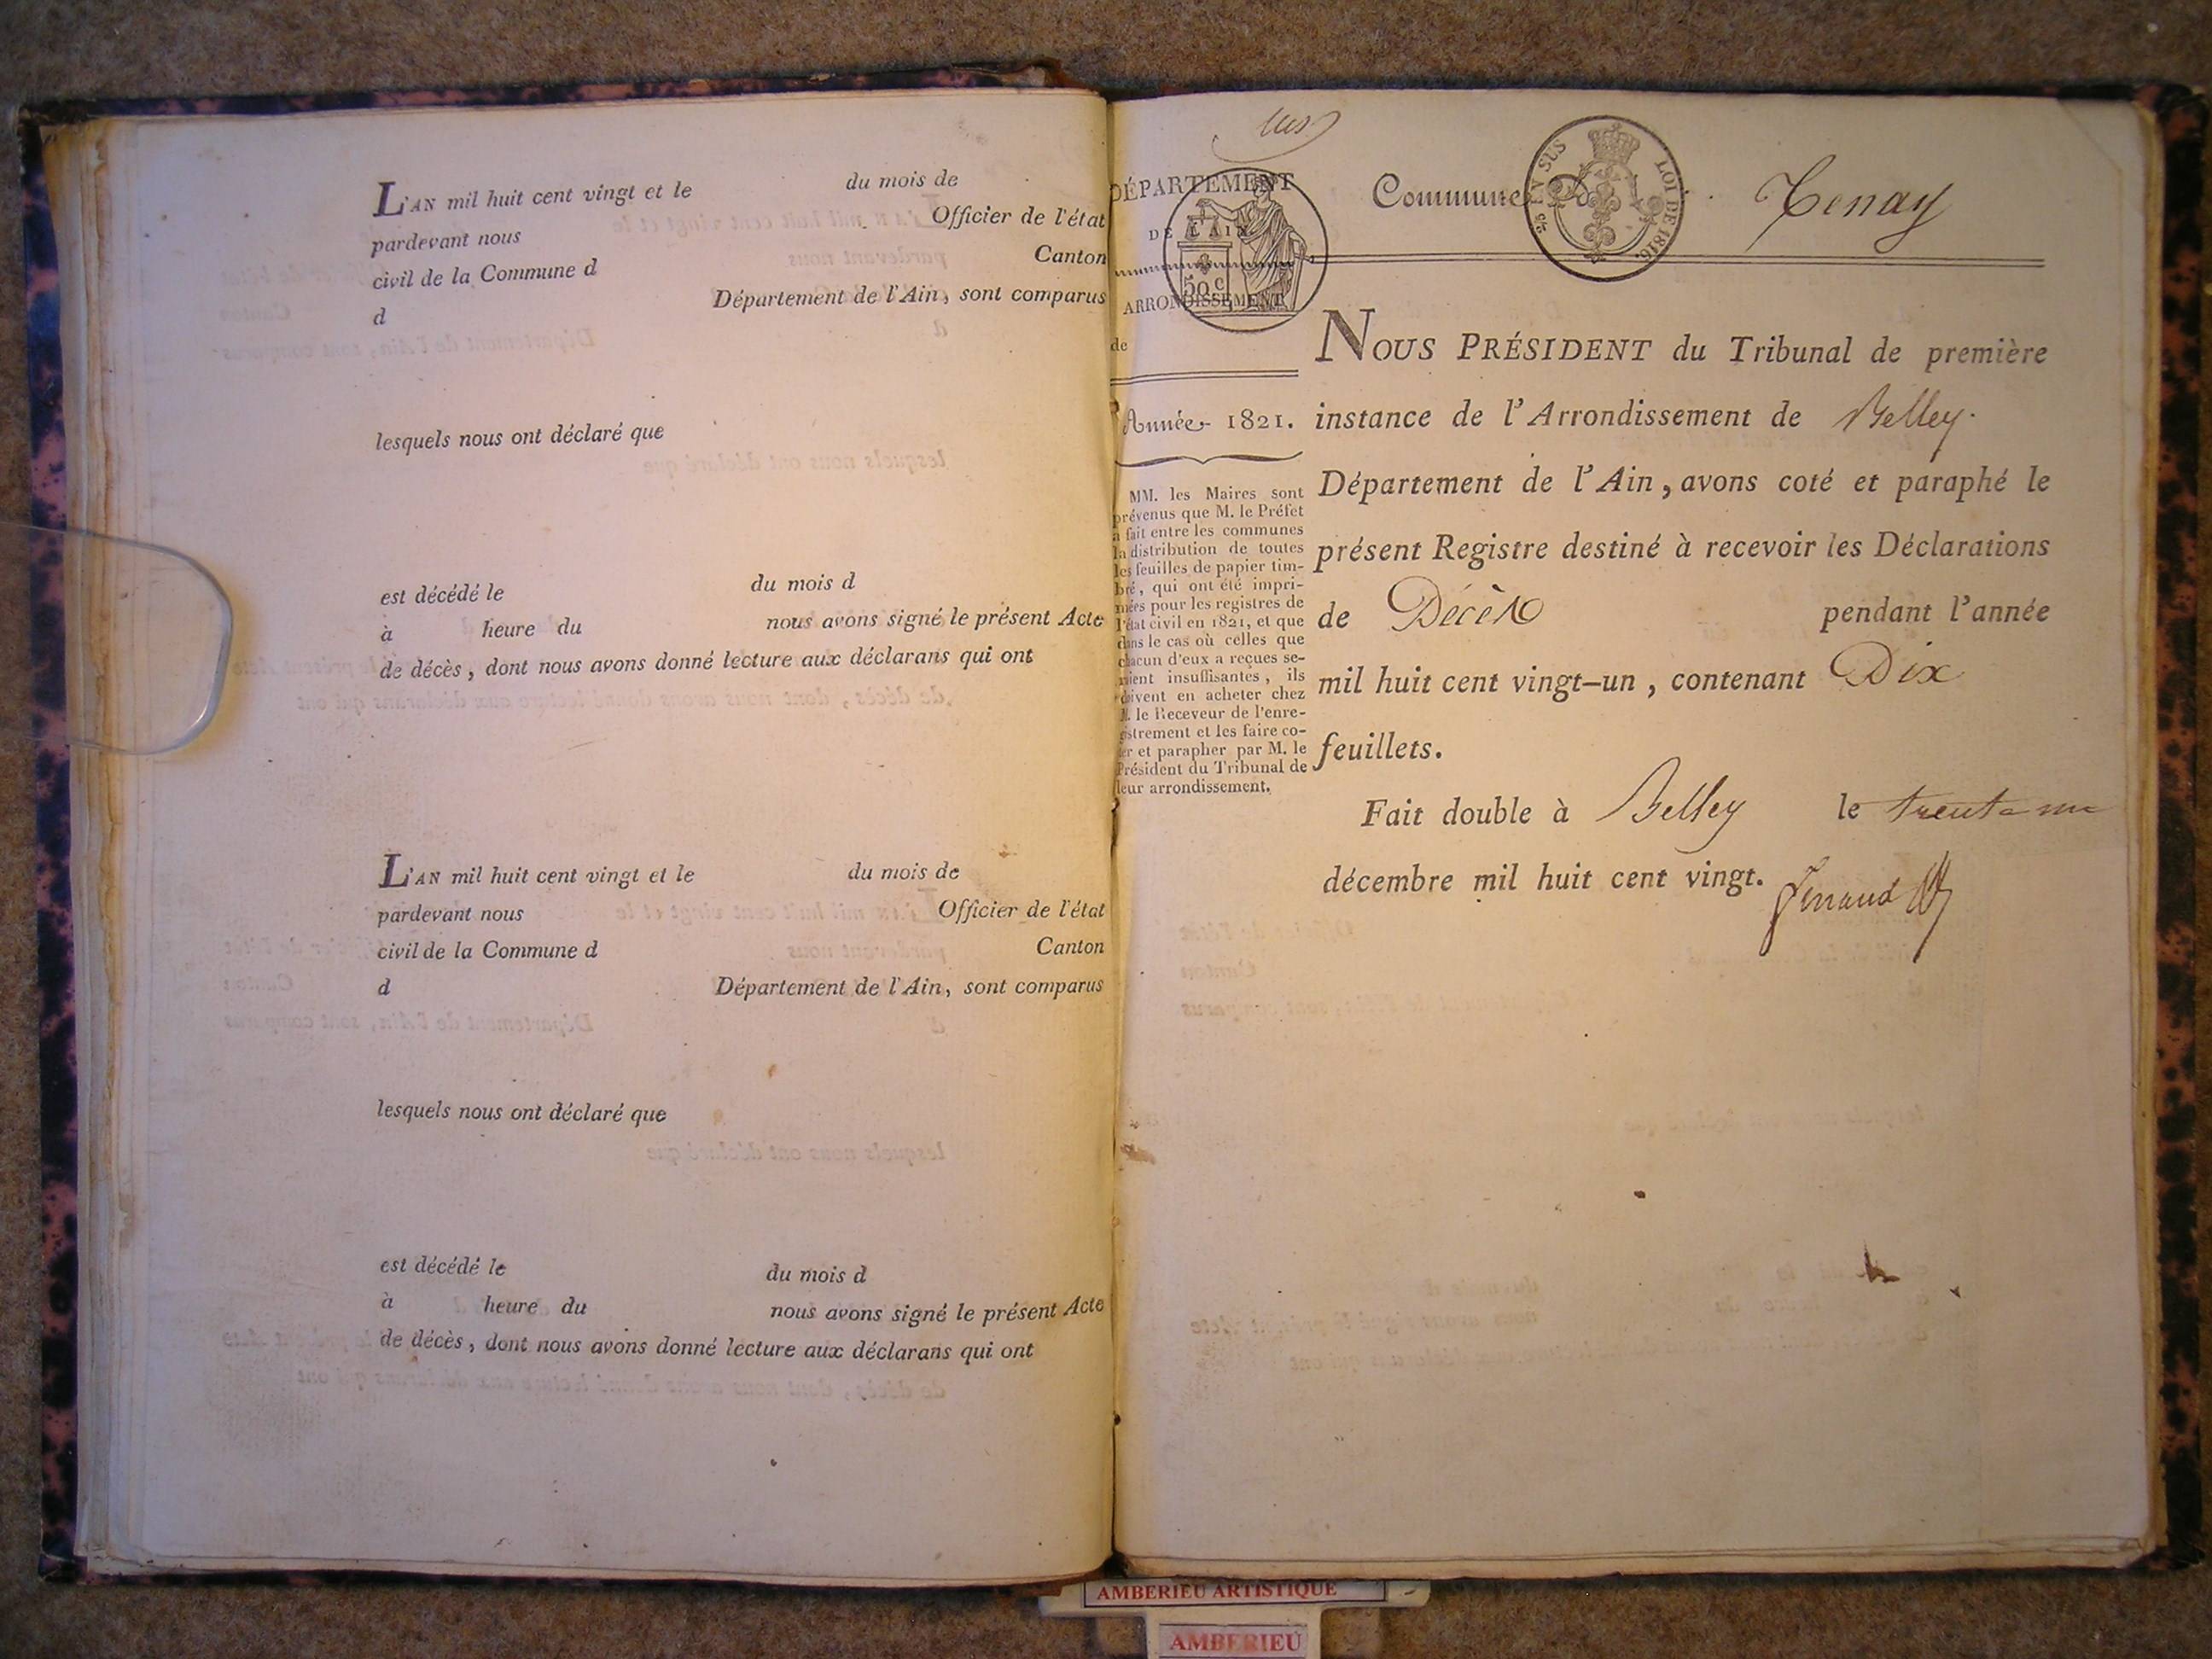 L'AN mil huit cent vingt et le du mois de
pardevant nous Officier de l'état
civil de la Commune d Canton
d Département de l'Ain, sont comparus
lesquels nous ont déclaré que
est décédé le du mois d
à heure du nous avons signé le présent Acte
de décès, dont nous avons donné lecture aux déclarans qui ont
L'AN mil huit cent vingt et le du mois de
pardevant nous Officier de l'état
civil de la Commune d Canton
d Département de l'Ain, sont comparus
lesquels nous ont déclaré que
est décédé le du mois d
à heure du nous avons signé le présent Acte
de décès, dont nous avons donné lecture aux déclarans qui ont
DÉPARTEMENT
DE L'AIN
ARRONDISSEMENT
de
50 c
Année 1821.
MM. les Maires sont
prévenus que M. le Préfet
a fait entre les communes
la distribution de toutes
les feuilles de papier tim-
bré, qui ont été impri-
mées pour les registres de
l'état civil en 1821, et que
dans le cas où celles que
chacun d'eux a reçues se-
roient insuffisantes, ils
doivent en acheter chez
M. le Receveur de l'enre-
gistrement et les faire co-
ter et parapher par M. le
Président du Tribunal de
leur arrondissement.
Commune d Tenay
EN SUS LOI DE 1816.
NOUS PRÉSIDENT du Tribunal de première
instance de l'Arrondissement de Belley.
Département de l'Ain, avons coté et paraphé le
présent Registre destiné à recevoir les Déclarations
de Décès pendant l'année
mil huit cent vingt-un, contenant Dix
feuillets.
Fait double à Belley le trente un
décembre mil huit cent vingt.
AMBERIEU ARTISTIQUE
AMBERIEU